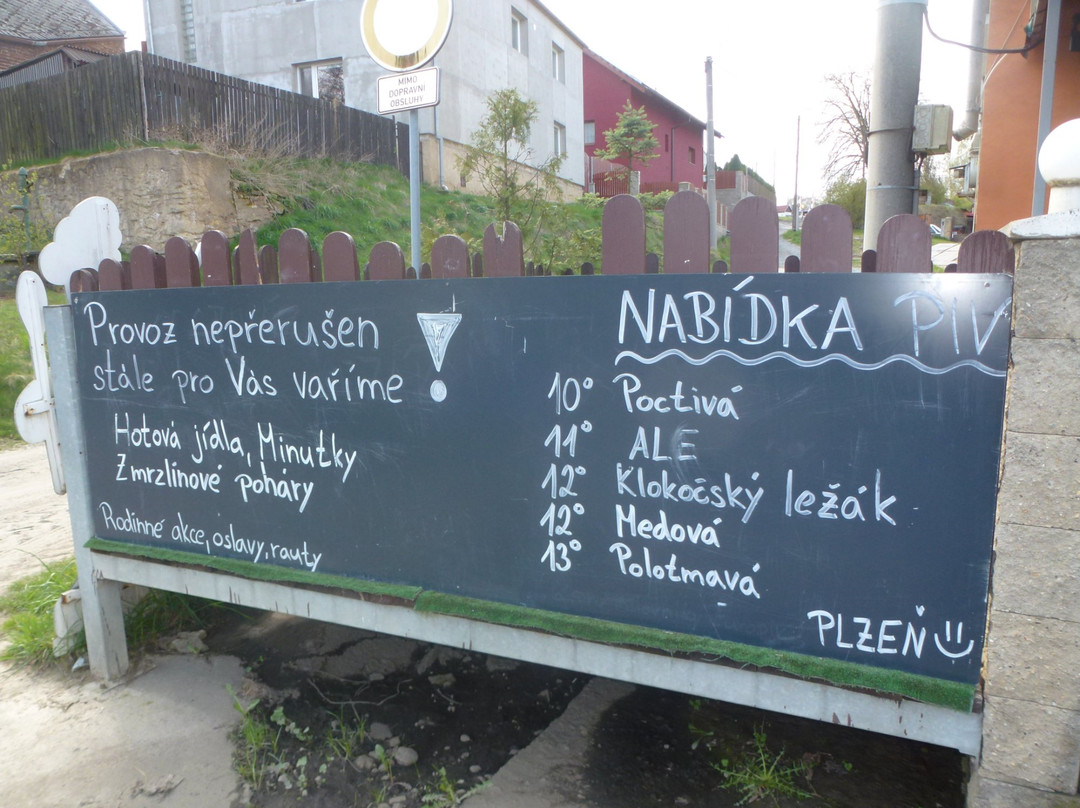 MIMO
DOPRAVNÍ
OBSLUHY
Provoz nepřerušen
stále pro Vás vaříme
Hotová jídla, Minutky
Zmrzlínové poháry
Rodinné akce, oslavy, rauty
NABÍDKA PIV
10° Poctivá
11° ALE
12° Klokočský ležák
12° Medová
13° Polotmavá
PLZEŇ